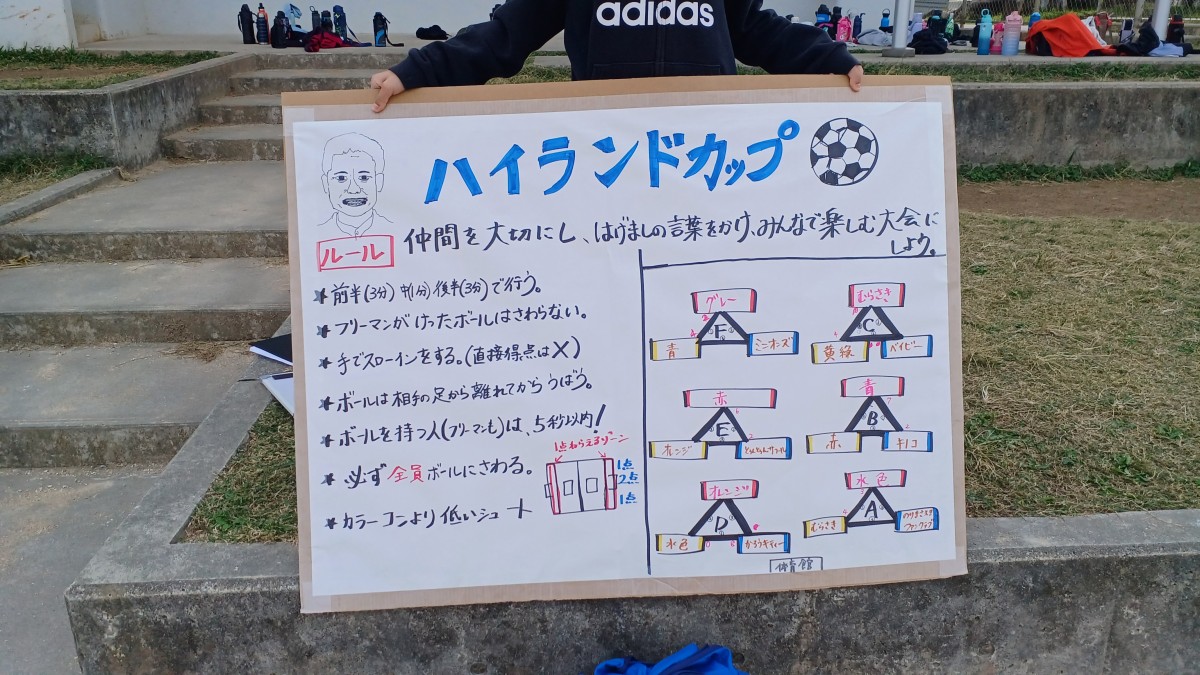 adidas
ハイランドカップ
ルール
仲間を大切にし、はげましの言葉をかけ、みんなで楽しむ大会に
しよう。
★前半(3分) 中(1分) 後半(3分)で行う。
★フリーマンがけったボールはさわらない。
★手でスローインをする。(直接得点は×)
★ボールは相手の足から離れてからうばう。
★ボールを持つ人(フリーマンも)は、5秒以内!
★必ず全員ボールにさわる。
★カラーコーンより低いシュート
1点ねらえるゾーン
1点
2点
1点
グレー
F
青
ミニオンズ
むらさき
C
黄緑
ベイビー
赤
E
オレンジ
青
B
赤
キノコ
オレンジ
D
水色
かろうキティー
水色
A
むらさき
ファンクラブ
体育館